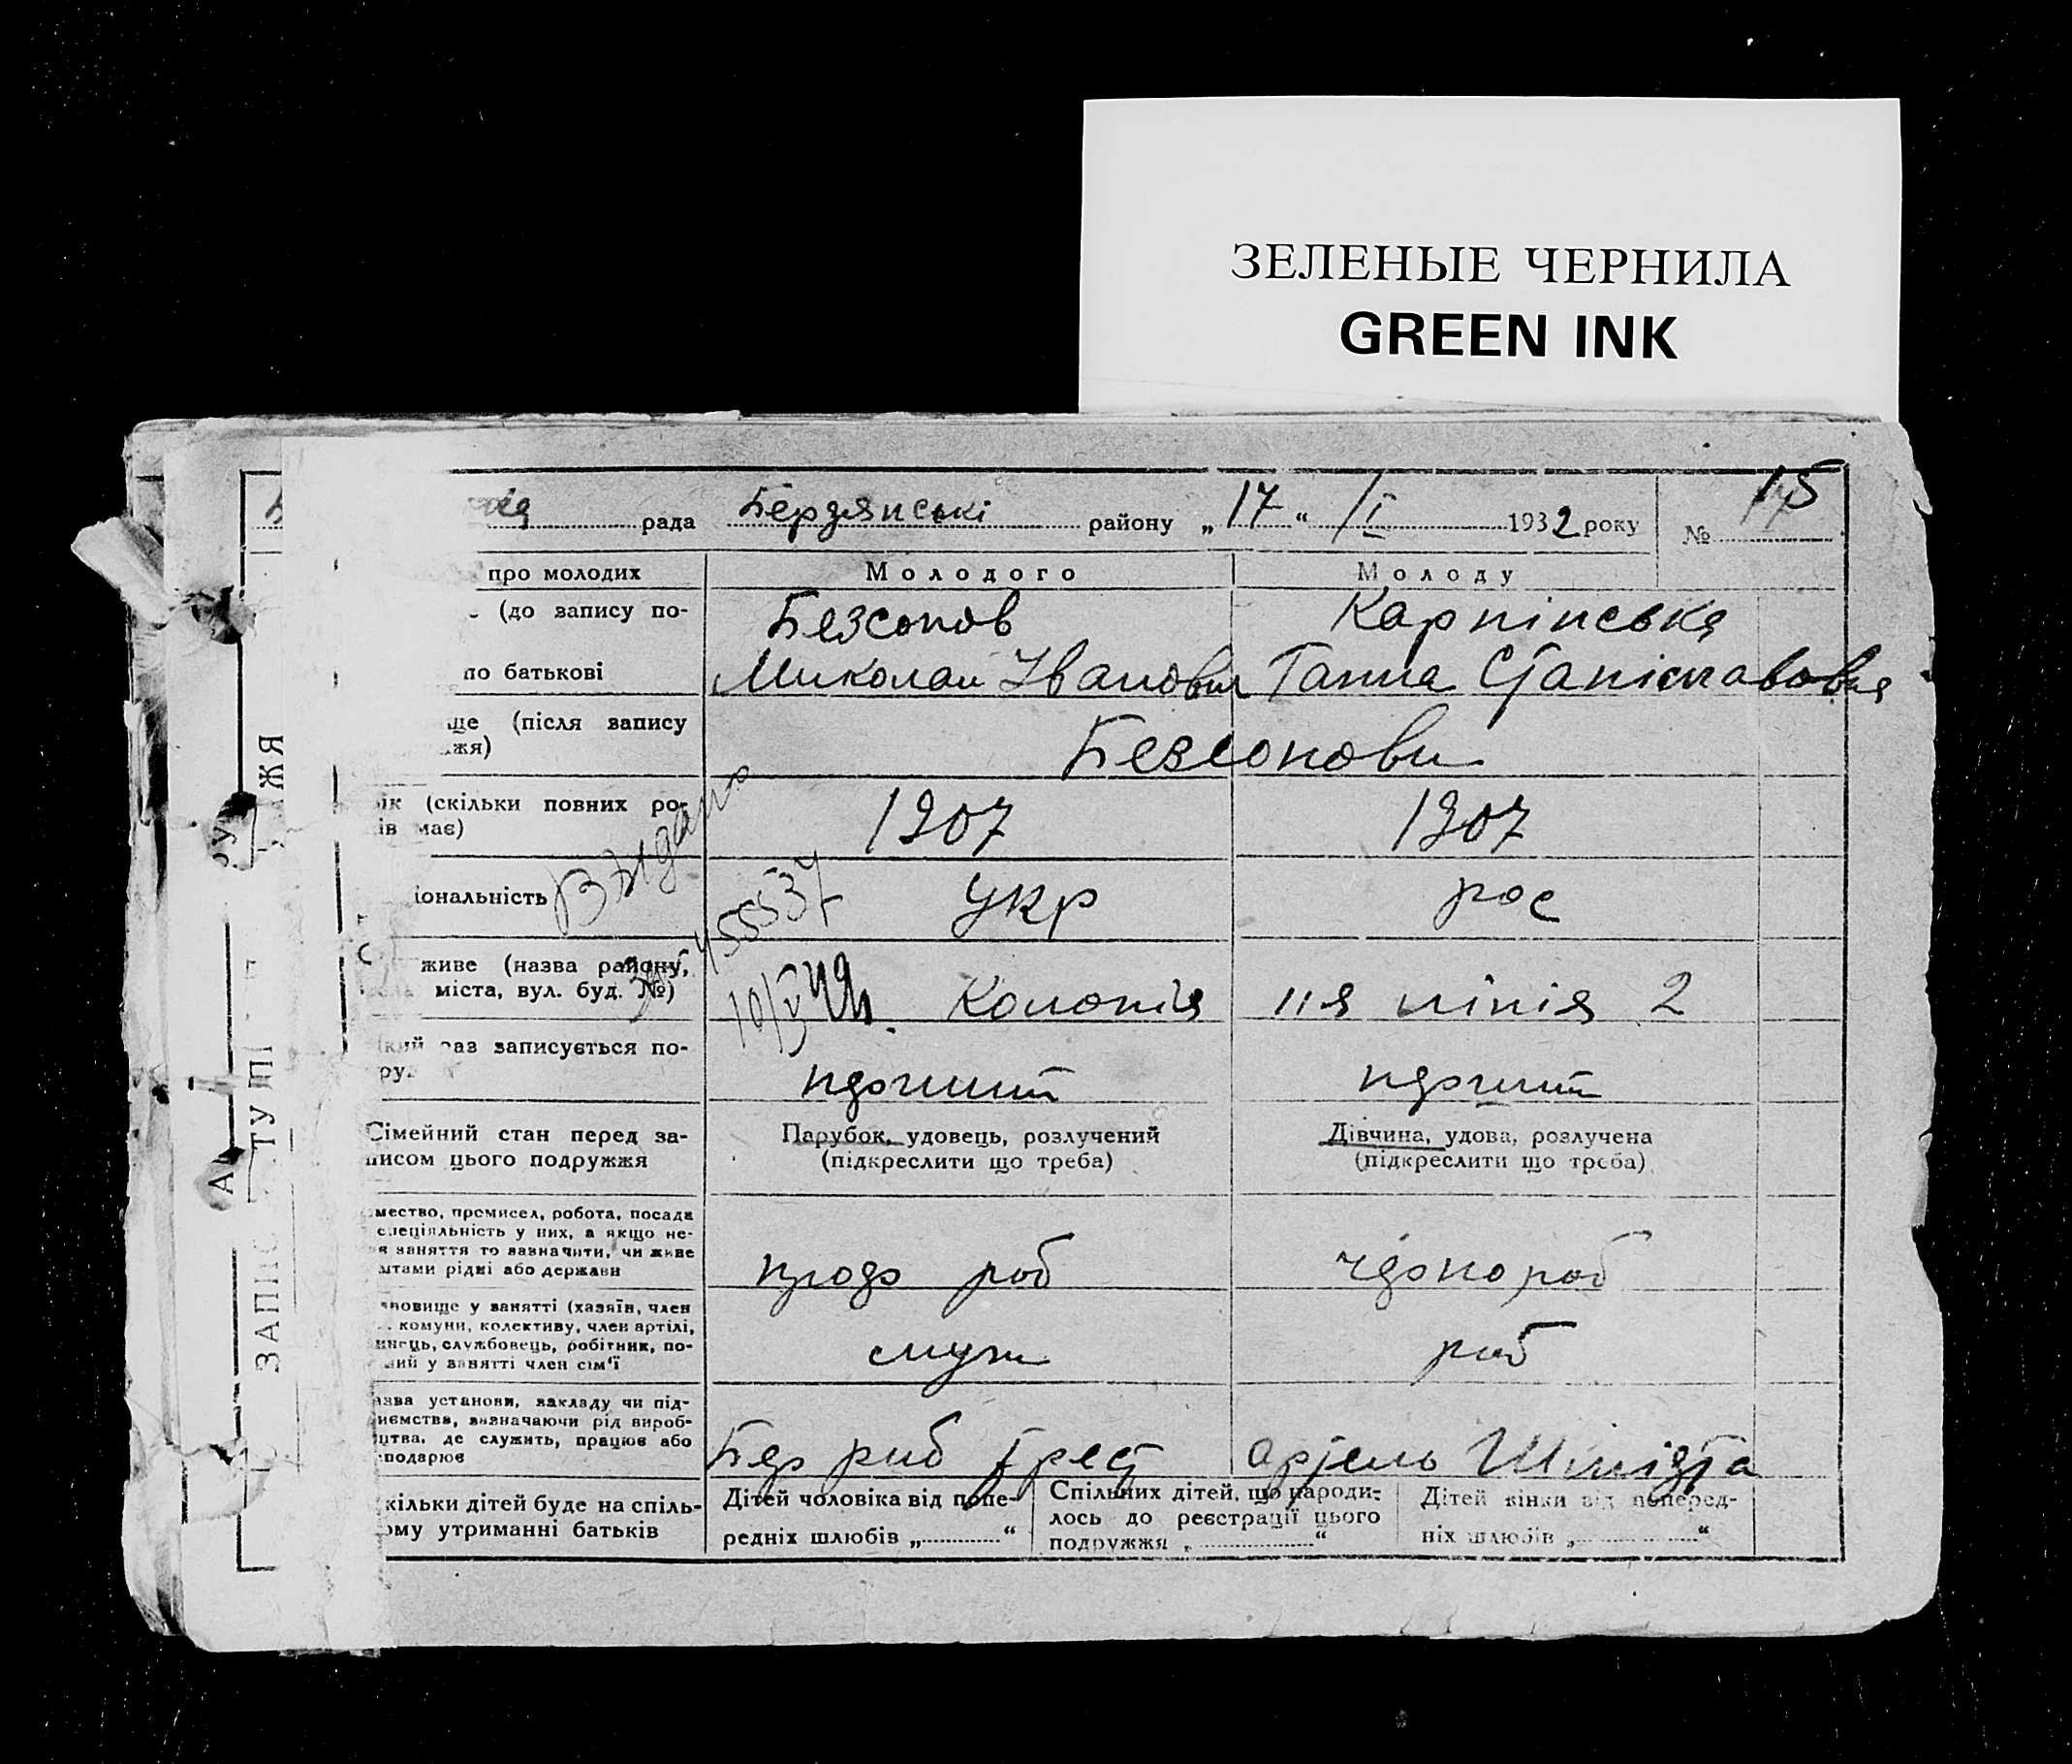 ЗЕЛЕНЫЕ ЧЕРНИЛА
GREEN INK
рада Бердянські району „17“ /I 1932 року № 15
про молодих Молодого Молоду
(до запису по- Безсонов Карпінська
по батькові Миколай Іванович Ганна Станіславовна
ще (після запису
жя) Безсонови
ік (скільки повних ро-
ів має) 1907 1907
іональність укр рос
Видано
455537
10/V 49
живе (назва району,
міста, вул. буд. №) Колонія 11я лінія 2
кий раз записується по-
ру
Сімейний стан перед за- Парубок, удовець, розлучений Дівчина, удова, розлучена
писом цього подружжя (підкреслити що треба) (підкреслити що треба)
мество, промисел, робота, посада
спеціяльність у них, а якщо не-
я заняття то зазначити, чи живе
штами рідні або держави роб чорнороб
новище у занятті (хазяїн, член
комуни, колективу, член артілі,
инець, службовець, робітник, по-
ний у занятті член сім'ї служ роб
азва установи, закладу чи під-
иємства, зазначаючи рід вироб-
цтва, де служить, працює або
сподарює Бер риб трест артель Шмідта
кільки дітей буде на спіль-
ому утриманні батьків
Дітей чоловіка від попе-
редніх шлюбів „ “
Спільних дітей, що народи-
лось до реєстрації цього
подружжя „ “
Дітей жінки від поперед-
ніх шлюбів „ “
ЗАПИС
ЖЯ